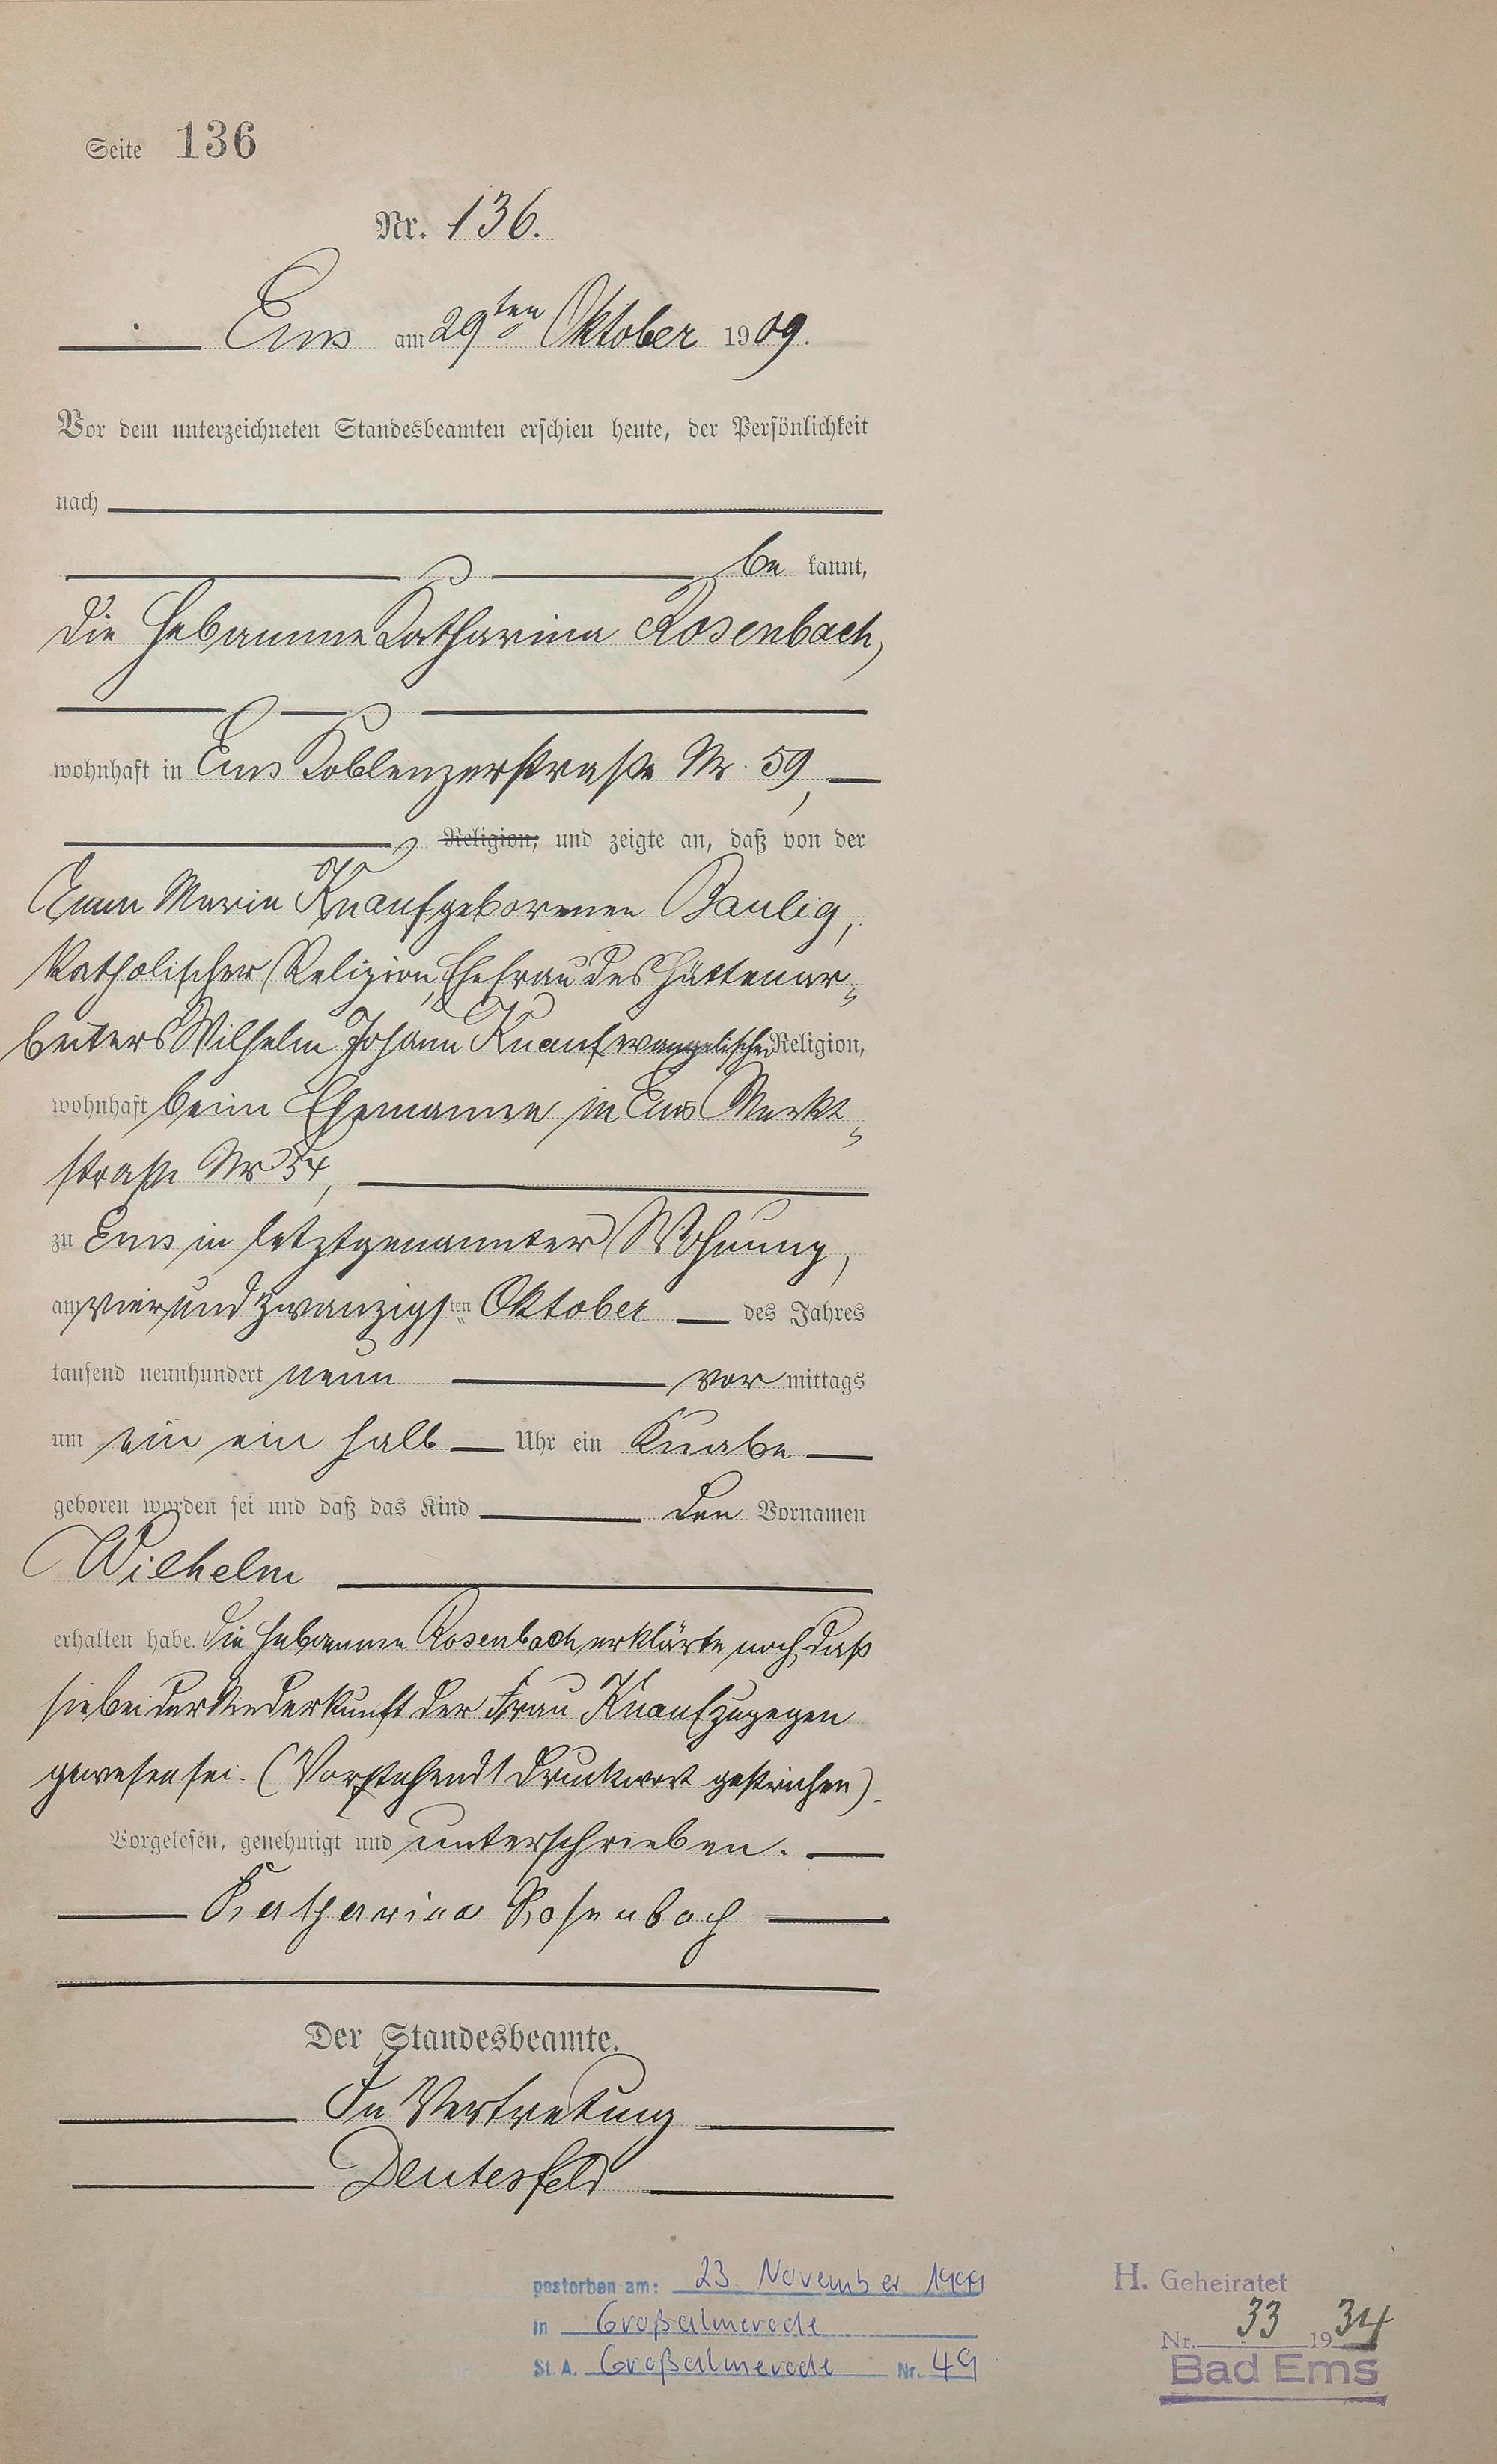 Seite 136
Nr. 136.
Ems am 29ten Oktober 1909.
Vor dem unterzeichneten Standesbeamten erschien heute, der Persönlichkeit
nach
be kannt,
die Hebamme Katharina Rosenbach,
wohnhaft in Ems Koblenzerstraße Nr. 59,
Religion, und zeigte an, daß von der
Anna Maria Knauf geborenen Baulig,
katholischer Religion, Ehefrau des Hüttenar-
beiters Wilhelm Johann Knauf evangelischer Religion,
wohnhaft beim Ehemanne in Ems Markt-
straße Nr 54,
zu Ems in letztgenannter Wohnung,
am vierundzwanzigsten Oktober des Jahres
tausend neunhundert neun vor mittags
um ein ein halb Uhr ein Knabe
geboren worden sei und daß das Kind den Vornamen
Wilhelm
erhalten habe. Die Hebamme Rosenbach erklärte noch, daß
sie bei der Niederkunft der Frau Knauf zugegen
gewesen sei. (Vorstehend 1 Druckwort gestrichen).
Vorgelesen, genehmigt und unterschrieben.
Katharina Rosenbach
Der Standesbeamte.
In Vertretung
Deutesfeld
gestorben am: 23. November
in Großalmerode
St. A. Großalmerode Nr. 49
H. Geheiratet
Nr. 33 1934
Bad Ems